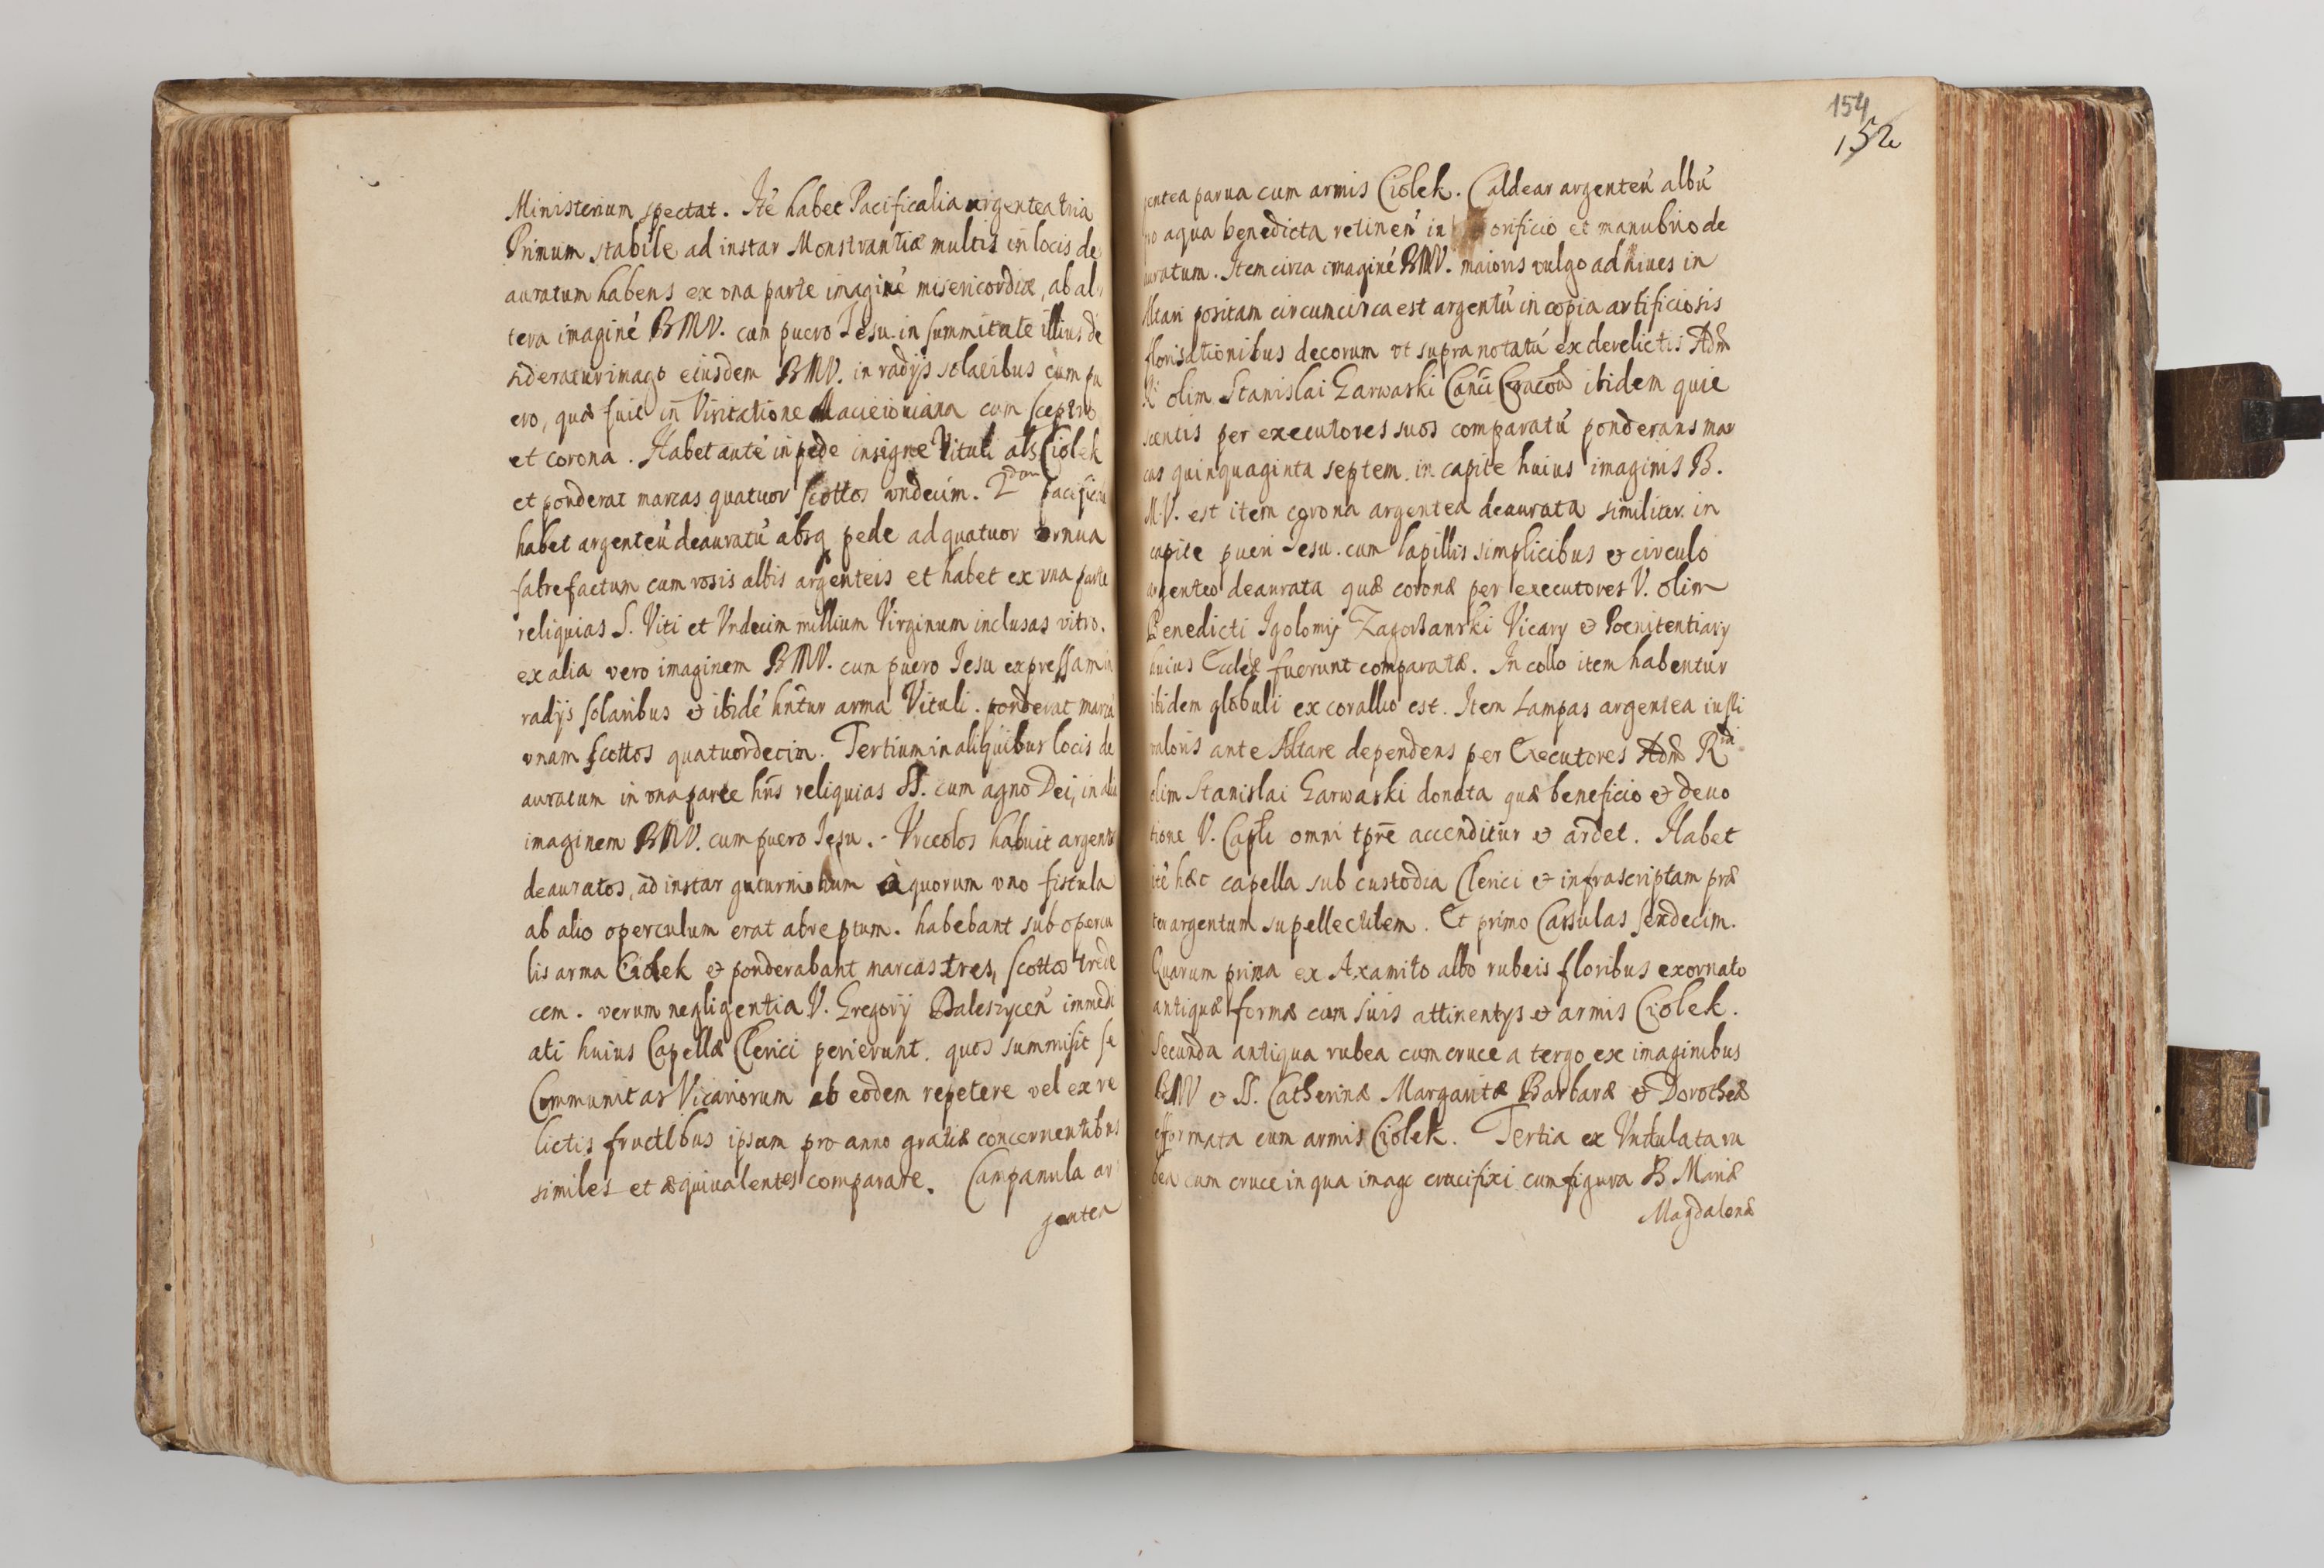 Ministerium spectat. Ité habet Pacificalia argentea tria
Primum stabile ad instar Monstrantiæ multis in locis de
auratum habens ex vna parte imaginé misericordiæ, ab al
tera imaginé BMV. cum puero Iesu. in summitate illius de
sideratur imago eiusdem BMV. in radijs solaribus cum pu
ero, quæ fuit in Visitatione Macieiouiana cum sceptro
et corona. Habet auté in pede insigne Vituli als Ciolek
et ponderat marcas quatuor scottos vndecim. 2dum pacificale
habet argenteú deauratú absq pede ad quatuor cornua
fabrefactum cum rosis albis argenteis et habet ex vna parte
reliquias S. Viti et Vndecim millium Virginum inclusas vitro.
ex alia vero imaginem BMV. cum puero Iesu expressam in
radijs solaribus & ibidé hntur arma Vituli. ponderat marcá
vnam scottos quatuordecim. Tertium in aliquibus locis de
auratum in vna parte hns reliquias SS. cum agno Dei, in alia
imaginem BMV. cum puero Iesu. - Vrceolos habuit argenteos
deauratos, ad instar guturniolium à quorum vno fistula
ab alio operculum erat abreptum. habebant sub opercu
lis arma Ciolek & ponderabant marcas tres, scottos trede
cem. verum negligentia V. Gregorij Daleszyceń immedi
ati huius Capellæ Clerici perierunt. quos summisit se
Communitas Vicariorum ab eodem repetere vel ex re
lictis fructibus ipsum pro anno gratiæ concernentibus
similes et æquiualentes comparare. Campanula ar
gentea
154
152
gentea parua cum armis Ciolek. Caldear argenteú albú
pro aqua benedicta retinen in orificio et manubrio de
auratum. Item circa imaginé BMV. maioris vulgo ad niues in
Altari positam circumcirca est argentú in copia artificiosis
florisationibus decorum vt supra notatú ex derelictis Adm
R olim Stanislai Garwaski Canci Cracou ibidem quie
scentis per executores suos comparatú ponderans mar
cas quinquaginta septem. in capite huius imaginis B.
M.V. est item corona argentea deaurata similiter in
capite pueri Iesu. cum lapillis simplicibus & circulo
argenteo deaurata quæ coronæ per executores V. olim
Benedicti Igolomij Vicary & Poenitentiary
huius Ecclæ fuerunt comparatæ. In collo item habentur
ibidem globuli ex corallio est. Item Lampas argentea iusti
valoris ante Altare dependens per Executores Adm Rdi
olim Stanislai Garwaski donata quæ beneficio & deuo
tione V. Capli omni tpre accenditur & ardet. Habet
ité hæc capella sub custodia Clerici & infrascriptam præ
ter argentum supellectilem. Et primo Casulas sexdecim.
Quarum prima ex Axamito albo rubeis floribus exornato
antiquæ formæ cum suis attinentys & armis Ciolek.
Secunda antiqua rubea cum cruce a tergo ex imaginibus
BMV & SS. Catherinæ Margaritæ Barbaræ & Dorotheæ
efformata cum armis Ciolek. Tertia ex Vndulata ru
bea cum cruce in qua imago crucifixi cum figura B. Mariæ
Magdalenæ